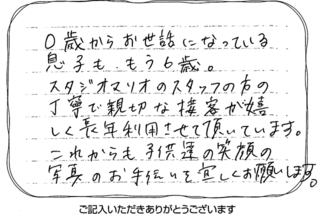 0歳からお世話になっている
息子も、もう6歳。
スタジオマリオのスタッフの方の
丁寧で親切な接客が嬉
しく長年利用させて頂いています。
これからも子供達の笑顔の
写真のお手伝いを宜しくお願いします。
ご記入いただきありがとうございます